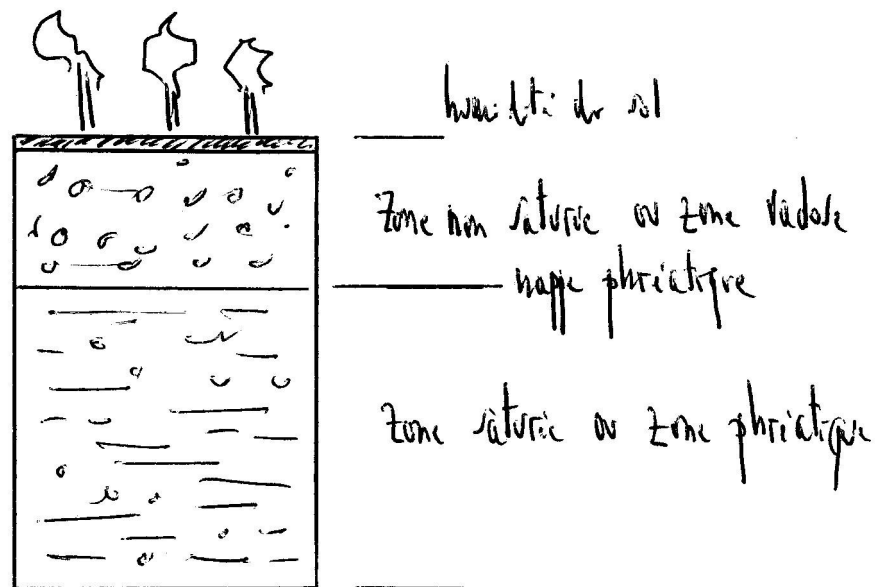 humidité du sol
Zone non saturée ou zone vadose
nappe phréatique
Zone saturée ou zone phréatique